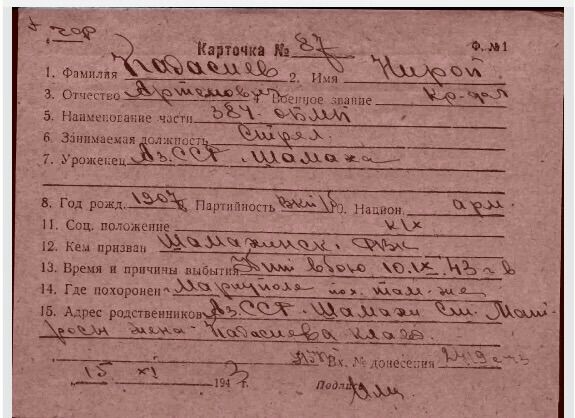 Карточка № 87 Ф. №1
1. Фамилия 2. Имя
3. Отчество Артемович 4. Военное звание кр-
5. Наименование части 384. ОБМП
6. Занимаемая должность Стрел.
7. Уроженец Аз.ССР. Шамаха
8. Год рожд. 1907 Партийность ВКП/б 10. Национ. арм.
11. Соц. положение к/х
12. Кем призван Шамахинск. РВК
13. Время и причины выбытия Убит в бою 10.IX.43 г в
14. Где похоронен Мариуполе пох. там-же
15. Адрес родственников Аз.ССР. Шамахи
жена
Вх. № донесения
15 XI 1943 г. Подпись